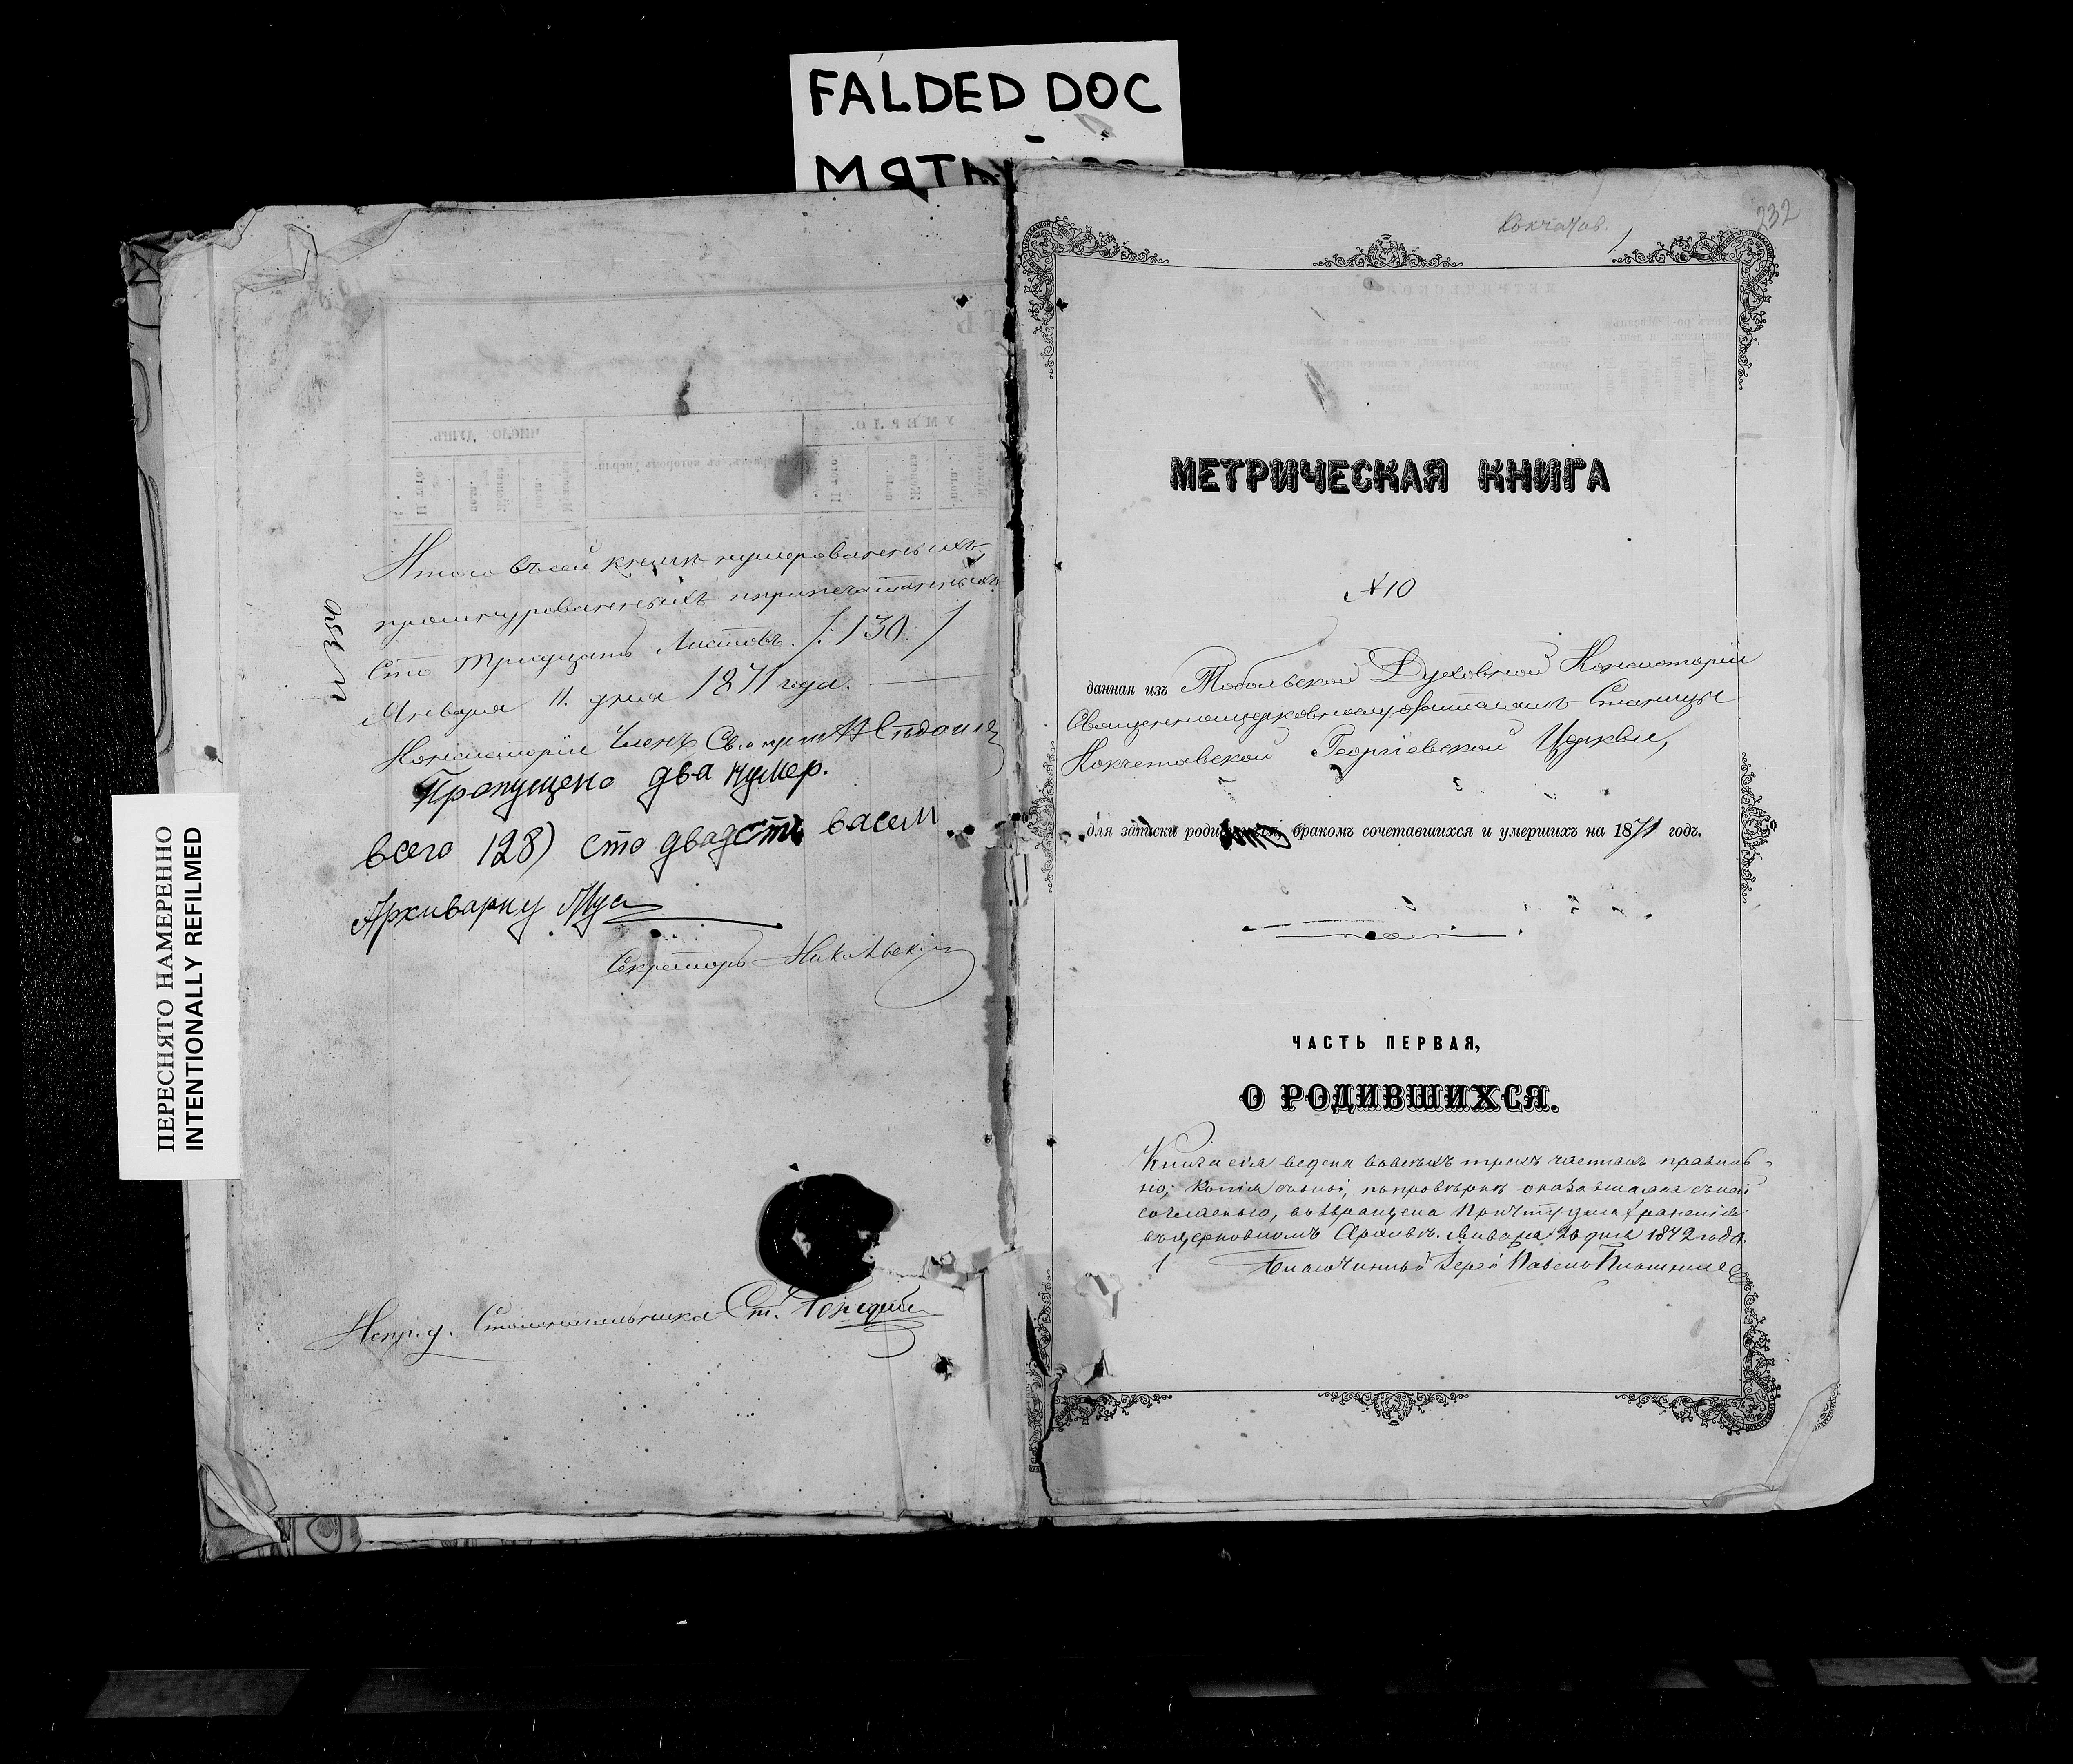 FALDED DOC
ПЕРЕСНЯТО НАМЕРЕННО
INTENTIONALLY REFILMED
Итого въ сей книгѣ нумерованныхъ
прошнурованныхъ и припечатанныхъ
Сто тридцать Листовъ. /:130:/
Января 11. дня 1871 года.
Консисторіи Членъ
Пропущено два нумер.
всего 128) сто двадсть васем
Архивариу
Секретарь Никольскій
Испр. д. Столоначальника Ст.
Кокчатов.
232
1
МЕТРИЧЕСКАЯ КНИГА
№10
данная изъ Тобольской Духовной Консисторіи
Священноцерковнослужителямъ Станицы
Кокчетавской Георгіевской Церкви,
для записки родившихся, бракомъ сочетавшихся и умершихъ на 1871 годъ.
ЧАСТЬ ПЕРВАЯ,
О РОДИВШИХСЯ.
Книга сія ведена во всѣхъ трехъ частяхъ правиль-
но; копія съ оной, по провѣркѣ оказавшаяся съ ней
согласною, возвращена Причту для храненія
въ церковномъ Архивѣ. Января 20 дня 1872 года.
Благочинный Іерей Павелъ